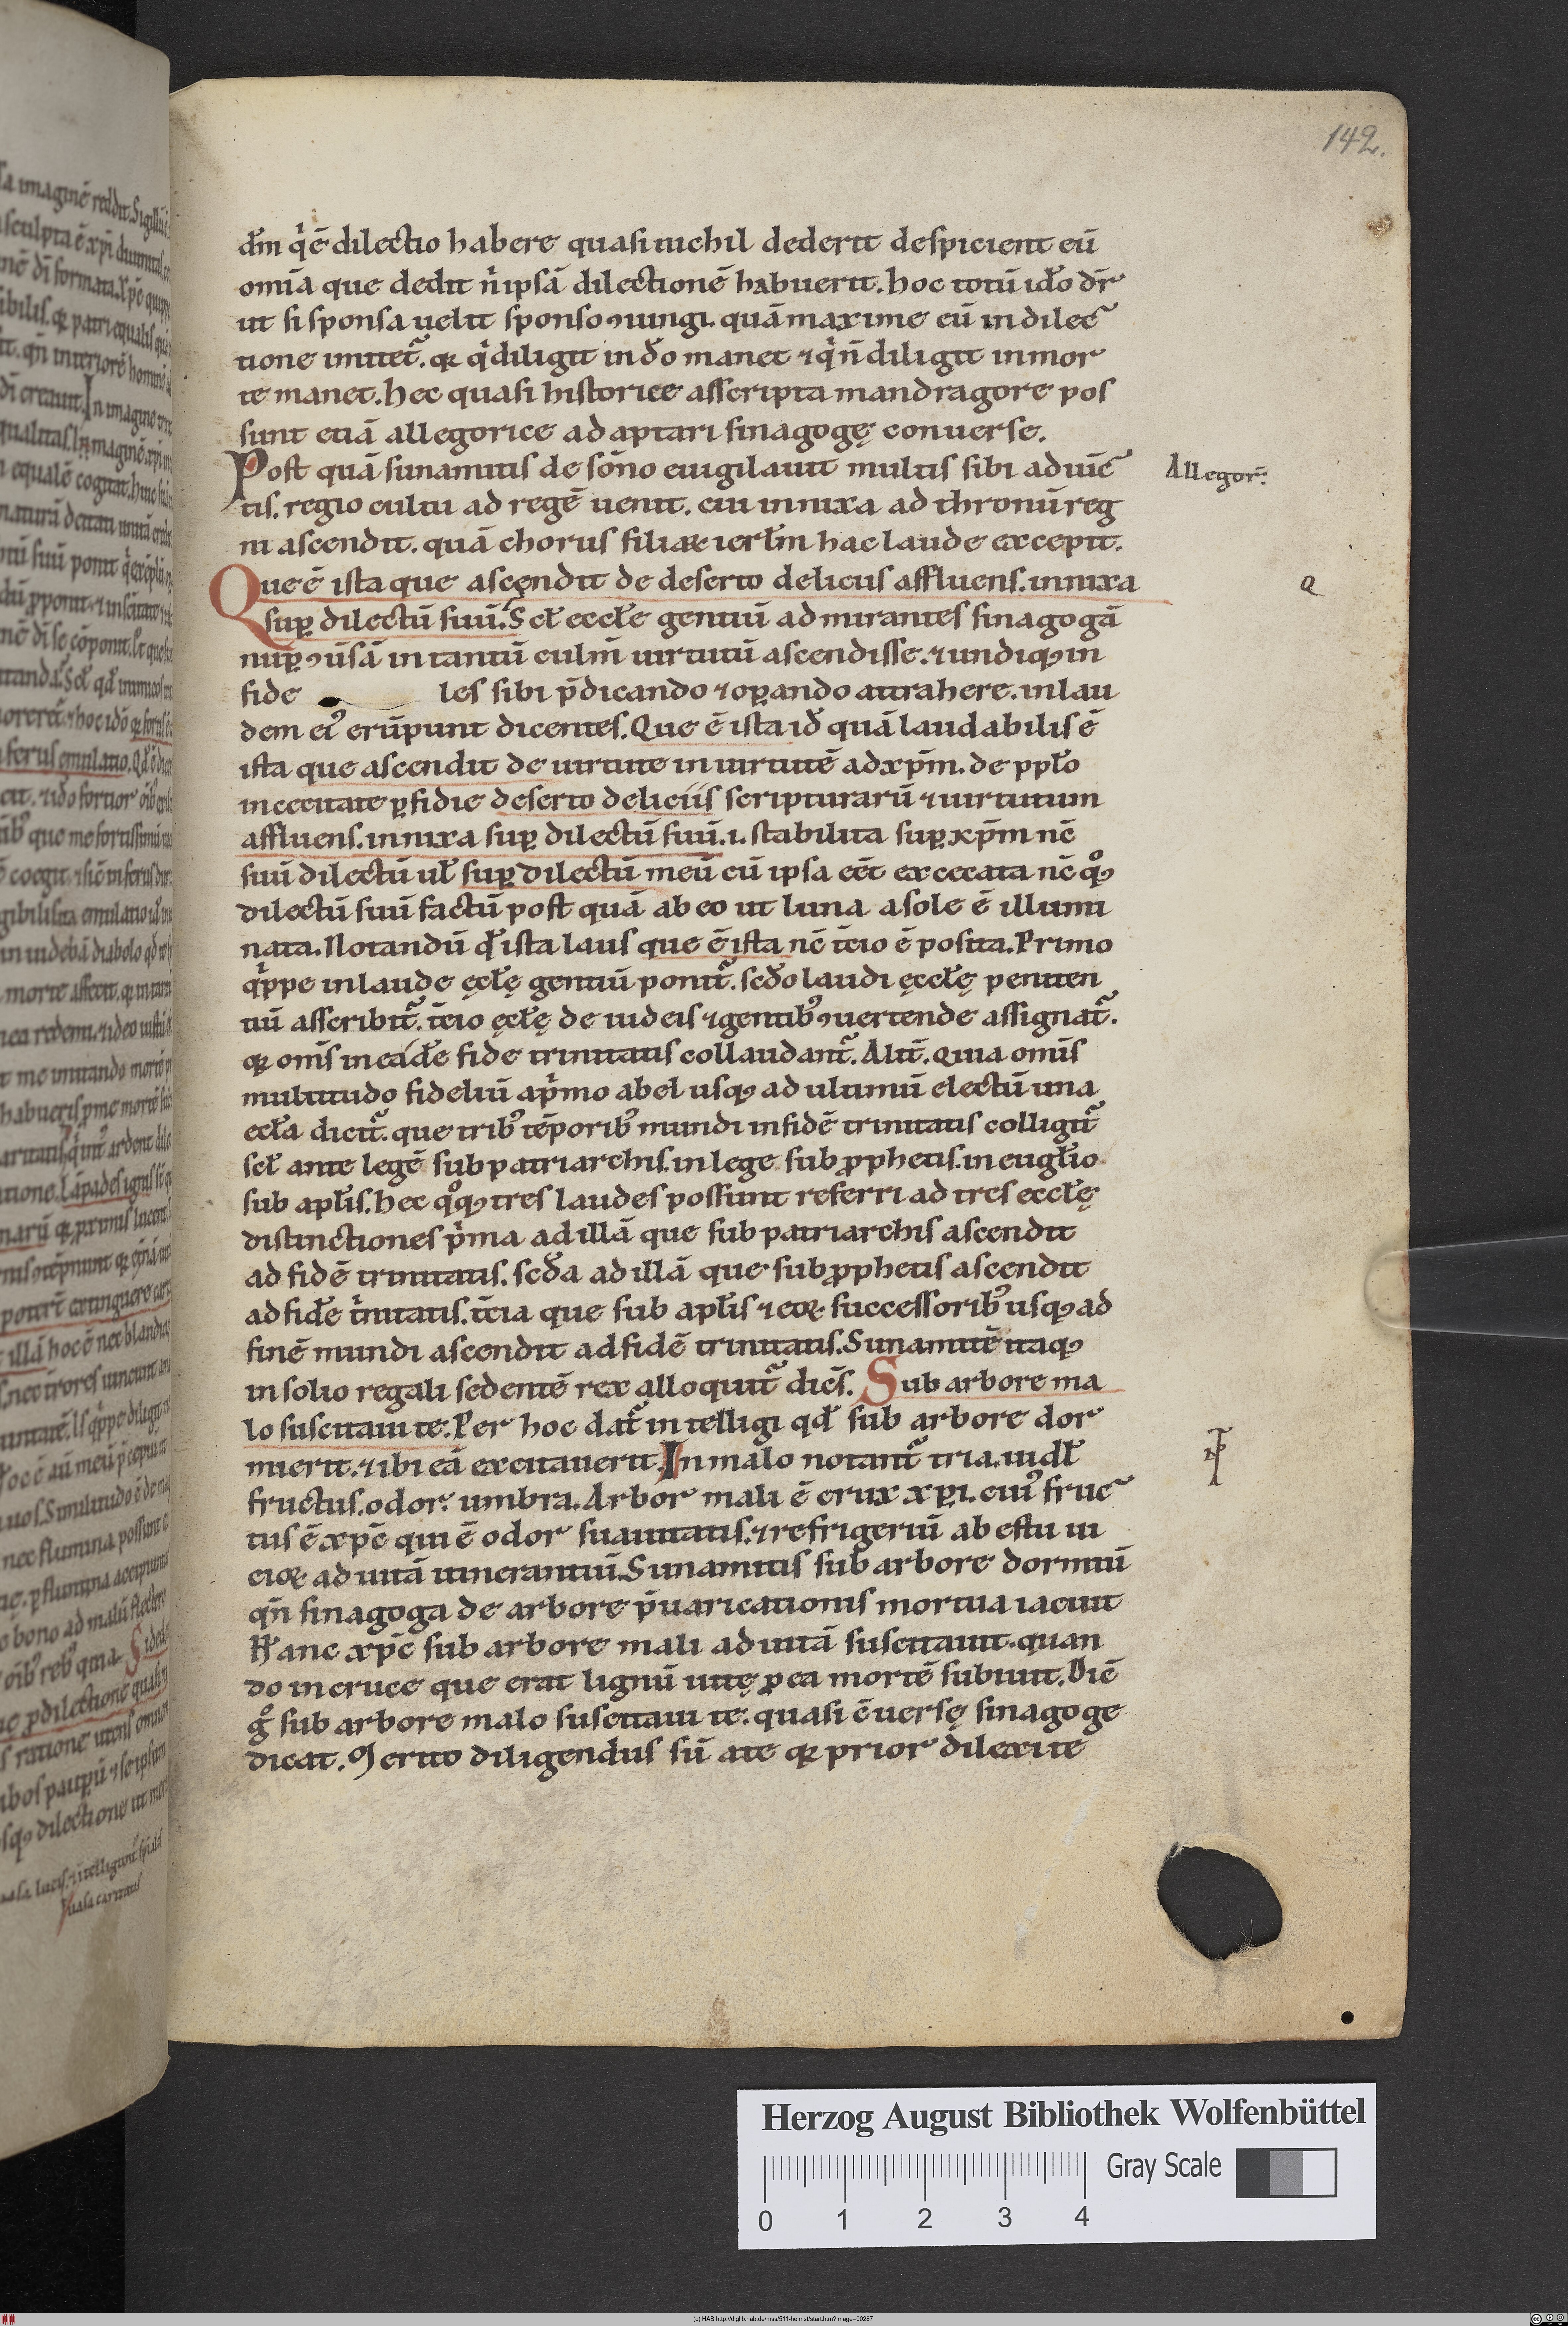 142.
dm̄ qͥ ē dilectio habere quasi nichil dederit despicient eū
omīa que dedit nͥ ipsā dilectionē habuerit. hoc totū ido dr̄
ut si sponsa uelit sponso ꝯiungi. quā maxime eū in dilec
tione imitet᷑. qꝛ qͥ diligit in dō manet ⁊ qͥ n̄ diligit in mor
te manet. hec quasi historice asscripta mandragore pos
sunt etiā allegorice adaptari sinagogę conuerse.
Post quā sunamitis de sōno euigilauit multis sibi aduīc
Allegor̄.
tis. regio cultu ad regē uenit. cui innixa ad thronū reg
ni ascendit. quā chorus filiaꝝ ierłm hac laude excepit.
Que ē ista que ascendit de deserto deliciis affluens. innixa
Q
suꝑ dilectū suū. Scł ecclē gentiū admirantes sinagogā
nuꝑ ꝯūsā in tantū culm̄ uirtutū ascendisse. ⁊ undiqꝫ in
fide les sibi p̄dicando ⁊ oꝑando attrahere. in lau
dem eiꝰ erūpunt dicentes. Que ē ista id̄ quā laudabilis ē
ista que ascendit de uirtute in uirtutē ad xp̄m. de ppło
in cecitate ꝑfidie deserto deliciis scripturarū ⁊ uirtutum
affluens. innixa suꝑ dilectū suū. i. stabilita suꝑ xp̄m nc̄
suū dilectū uł suꝑ dilectū meū cū ipsa eēt excecata nc̄ qͦqꝫ
dilectū suū factū post quā ab eo ut luna a sole ē illumi
nata. Notandū qđ ista laus que ē ista nc̄ t̄cio ē posita. Primo
qͥppe in laude ęcłę gentiū ponit᷑. scđo laudi ęccłę peniten
tiū asscribit᷑. t̄cio ęcłę de iudeis ⁊ gentibꝰ ꝯuertende assignat᷑.
qꝛ om̄s in eadē fide trinitatis collaudant᷑. Alit̄. Quia om̄s
multitudo fideliū a pͥmo abel usqꝫ ad ultimū electū una
ecłā dicit᷑. que tribꝰ tēporibꝰ mundi in fidē trinitatis colligit᷑
scł ante legē sub patriarchis. in lege sub ꝓphetis. in euglīo
sub apłis. hec qͦqꝫ tres laudes possunt referri ad tres eccłę
distinctiones pͥma ad illā que sub patriarchis ascendit
ad fidē trinitatis. scđa ad illā que sub ꝓphetis ascendit
ad fidē tͥnitatis. t̄cia que sub apłis ⁊ eoꝝ successoribꝰ usqꝫ ad
finē mundi ascendit ad fidē trinitatis. Sunamitē itaqꝫ
in solio regali sedentē rex alloquit᷑ dicēs. Sub arbore ma
lo suscitaui te. Per hoc dat᷑ intelligi qđ sub arbore dor
mierit. ⁊ ibi eā excitauerit. In malo notant᷑ tria. uidł
fructus. odor. umbra. Arbor mali ē crux xp̄i. cuiꝰ fruc
tus ē xp̄c qui ē odor suauitatis. ⁊ refrigeriū ab estu ui
cioꝝ ad uitā itinerantiū. Sunamitis sub arbore dormiū
qn̄ sinagoga de arbore p̄uaricationis mortua iacuit
Hanc xp̄c sub arbore mali ad uitā suscitauit. quan
do in cruce que erat lignū uitę ꝓ ea mortē subiuit. Dic̄
gͦ sub arbore malo suscitaui te. quasi ꝯuersę sinagoge
dicat. Merito diligendus sū a te qꝛ prior dilexi te
Herzog August Bibliothek Wolfenbüttel
Gray Scale
0 1 2 3 4
(c) HAB http://diglib.hab.de/mss/511-helmst/start.htm?image=00287